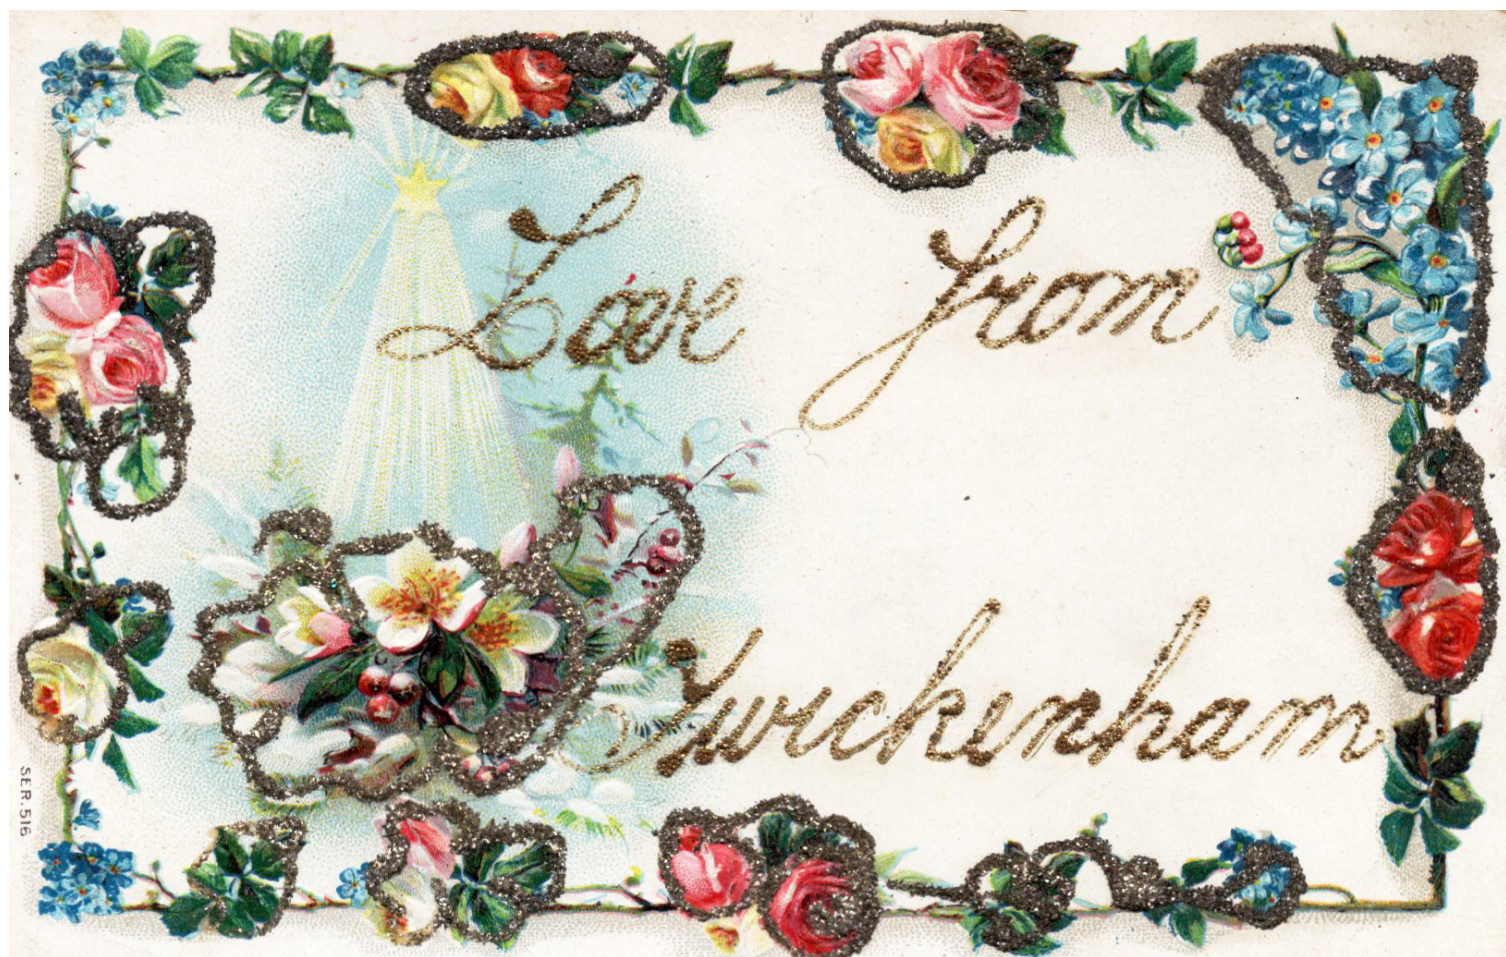 Love from
Twickenham
SER. 516